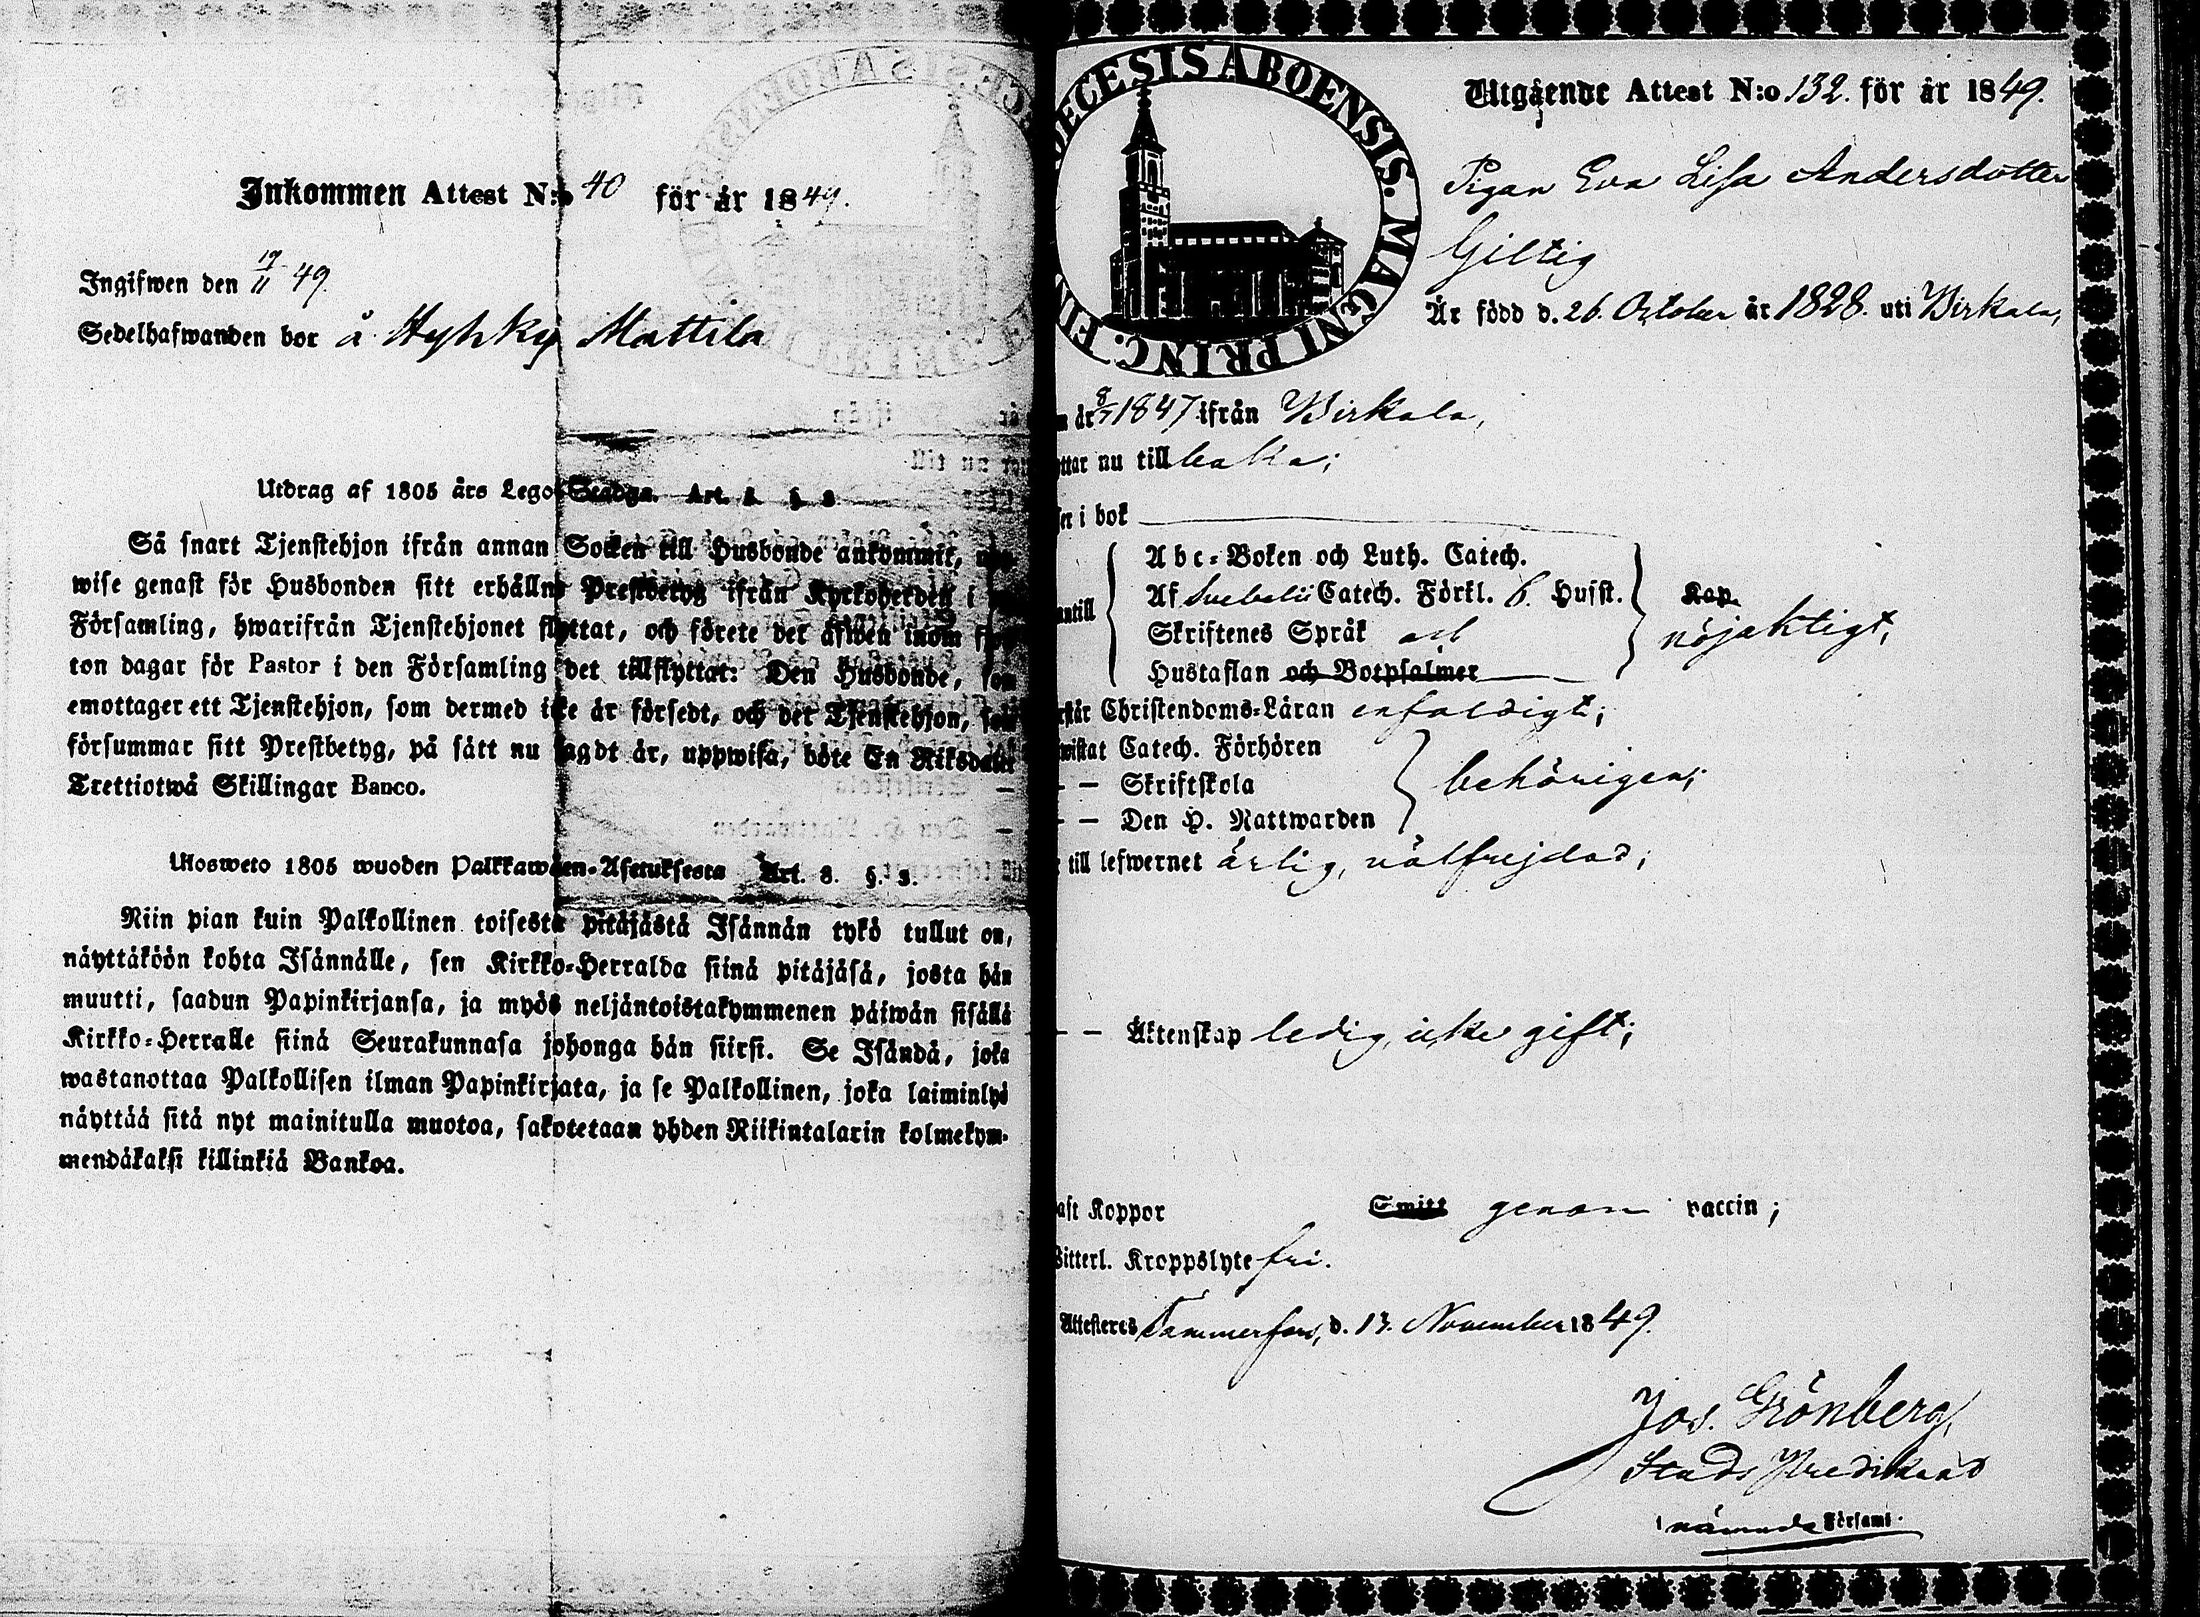 Inkommen Attest N:o 40 för år 1849.
Ingifwen den 19/11 49.
Sedelhafwanden bor å Hyhky Mattila
Utdrag af 1805 års Lego-Stadga. Art. 8. §. 8
Så snart Tjenstehjon ifrån annan Socken till Husbonde ankommit,
wise genast för Husbonden sitt erhållne Prestbetyg ifrån Kyrkoherden i
Församling, hwarifrån Tjenstehjonet flyttat, och förete det äfwen inom
ton dagar för Pastor i den Församling det tillflyttat: Den Husbonde, som
emottager ett Tjenstehjon, som dermed icke är försedt, och det Tjenstehjon, som
försummar sitt Prestbetyg, på sätt nu sagdt är, uppwisa, böte En Riksdaler
Trettiotwå Skillingar Banco.
Ulosweto 1805 wuoden Palkkawäen-Asetuksesta Art. 8. §. 8.
Niin pian kuin Palkollinen toisesta pitäjästä Isännän tykö tullut on,
näyttäköön kohta Isännälle, sen Kirkko-Herralda siinä pitäjäsä, josta hän
muutti, saadun Papinkirjansa, ja myös neljäntoistakymmenen päiwän sisällä
Kirkko-Herralle siinä Seurakunnasa johonga hän siirsi. Se Isändä, joka
wastanottaa Palkollisen ilman Papinkirjata, ja se Palkollinen, joka laiminlyö
näyttää sitä nyt mainitulla muotoa, sakotetaan yhden Riikintalarin kolmekym-
mendäkaksi killinkiä Bankoa.
DIOECESIS ABOENSIS. MAGNI PRINC. FIN
Utgående Attest N:o 132. för år 1849.
Pigan Eva Lisa Andersdotter
Giltig
Är född d. 26. October år 1828. uti Birkala,
n år 8/7 1847 ifrån Birkala,
ttar nu till baka;
ser i bok
Abc-Boken och Luth. Catech.
antill Af Svebelii Catech. Förkl. 6. Husst. Kap.
Skriftenes Språk och nöjaktigt,
Hustaflan och Botpsalmer
rstår Christendoms-Läran enfaldigt;
wistat Catech. Förhören
– – Skriftskola behörigen;
– – Den H. Nattwarden
r till lefwernet ärlig, välfrejdad;
– – Äktenskap ledig, icke gift;
aft Koppor Smitt genom vaccin;
Witterl. Kroppslyte fri.
Attesteres Tammerfors, d. 13. November 1849.
Jos. Grönberg,
Stads Predikand
i nämnde Förfaml.